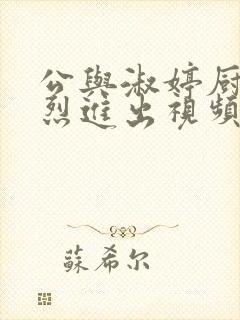 公與淑婷厨
烈進出視頻
蘇希尔